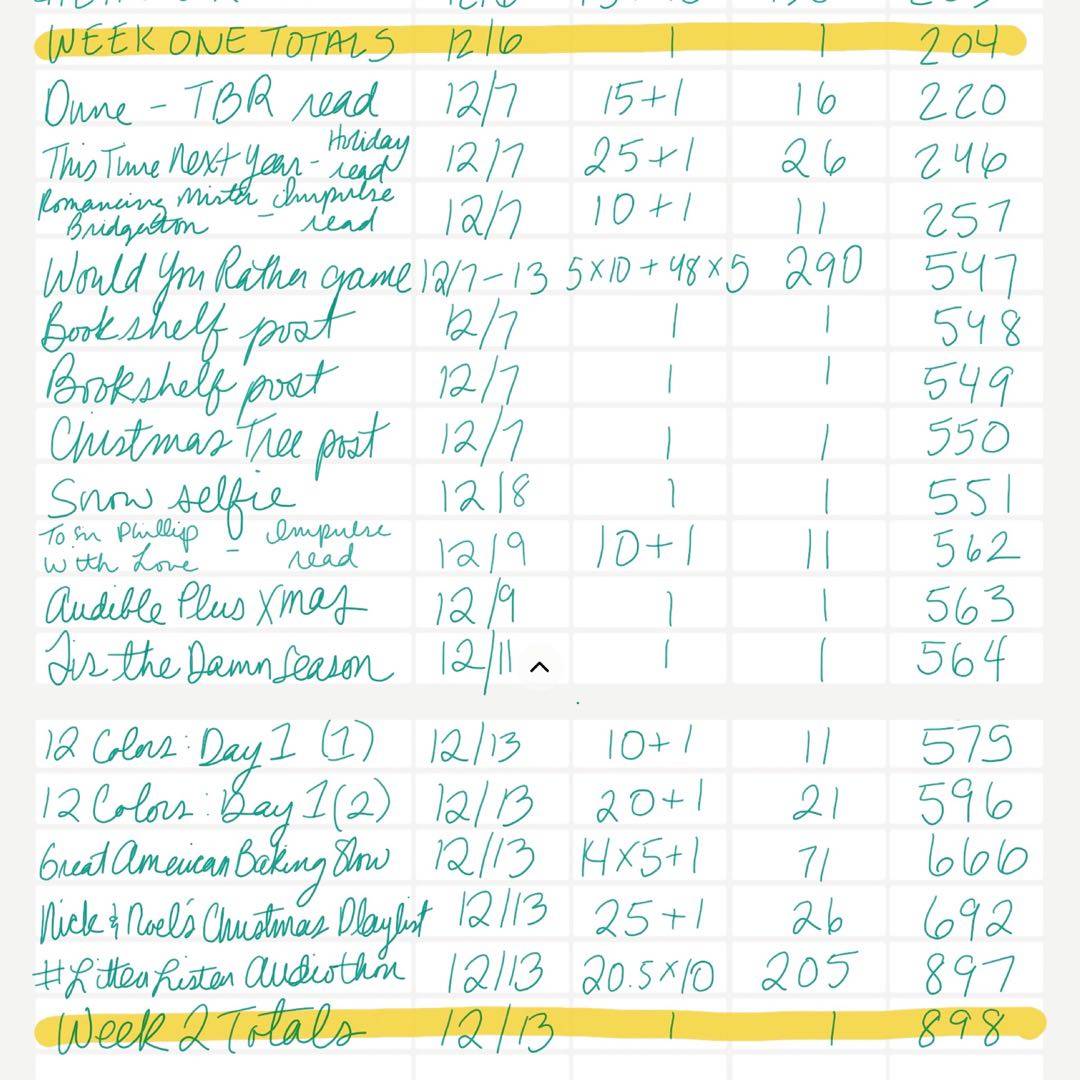 WEEK ONE TOTALS 12/6 1 1 204
Dune - TBR read 12/7 15+1 16 220
This Time Next Year - Holiday read 12/7 25+1 26 246
Romancing Mister Bridgerton - Impulse read 12/7 10+1 11 257
Would You Rather game 12/7-13 5x10+48x5 290 547
Bookshelf post 12/7 1 1 548
Bookshelf post 12/7 1 1 549
Christmas Tree post 12/7 1 1 550
Snow selfie 12/8 1 1 551
To Sir Phillip With Love - Impulse read 12/9 10+1 11 562
Audible Plus Xmas 12/9 1 1 563
Tis the Damn Season 12/11 1 1 564
12 Colors: Day 1 (1) 12/13 10+1 11 575
12 Colors: Day 1 (2) 12/13 20+1 21 596
Great American Baking Show 12/13 14x5+1 71 666
Nick & Noel's Christmas Playlist 12/13 25+1 26 692
#LittenListen Audiothon 12/13 20.5x10 205 897
Week 2 Totals 12/13 1 1 898